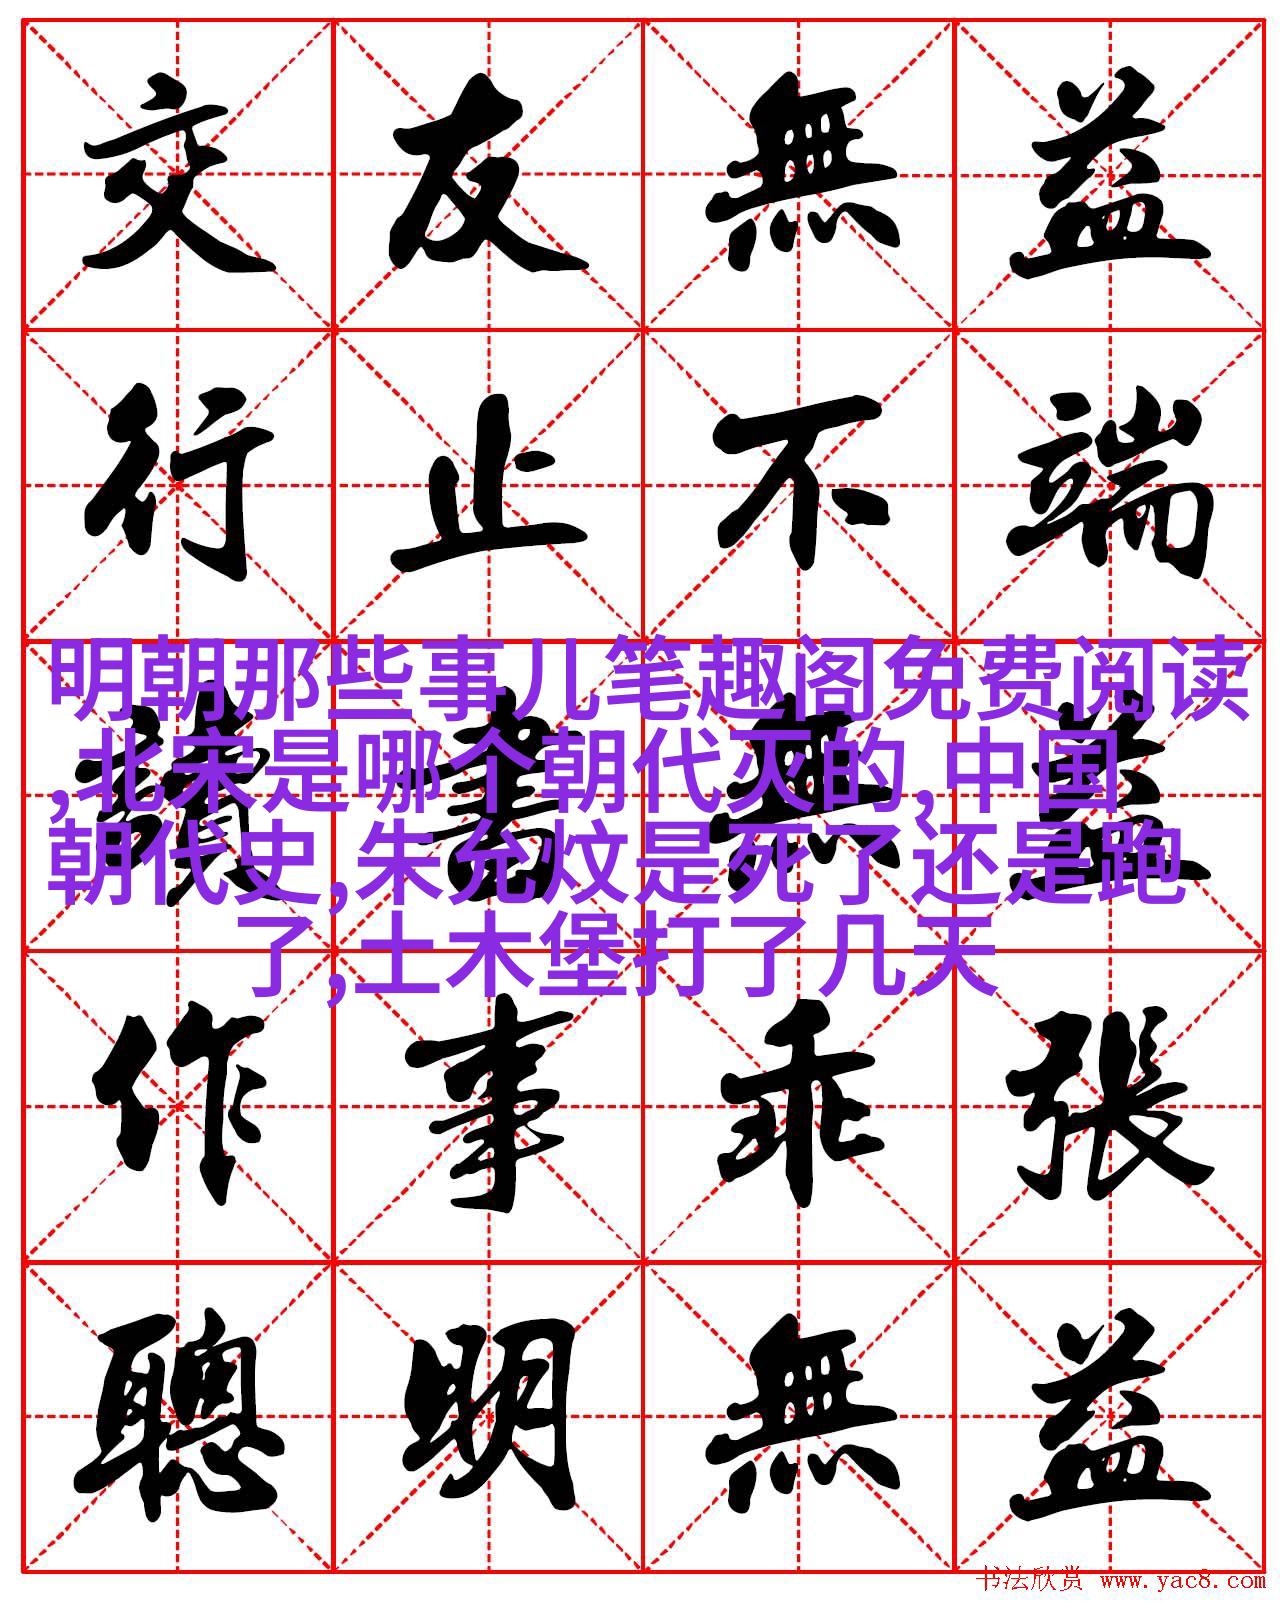 交友無益
行止不端
讀書無益
明朝那些事儿笔趣阁免费阅读
,北宋是哪个朝代灭的,中国
朝代史,朱允炆是死了还是跑
了,土木堡打了几天
作事乖張
聰明無益
书法欣赏 www.yac8.com